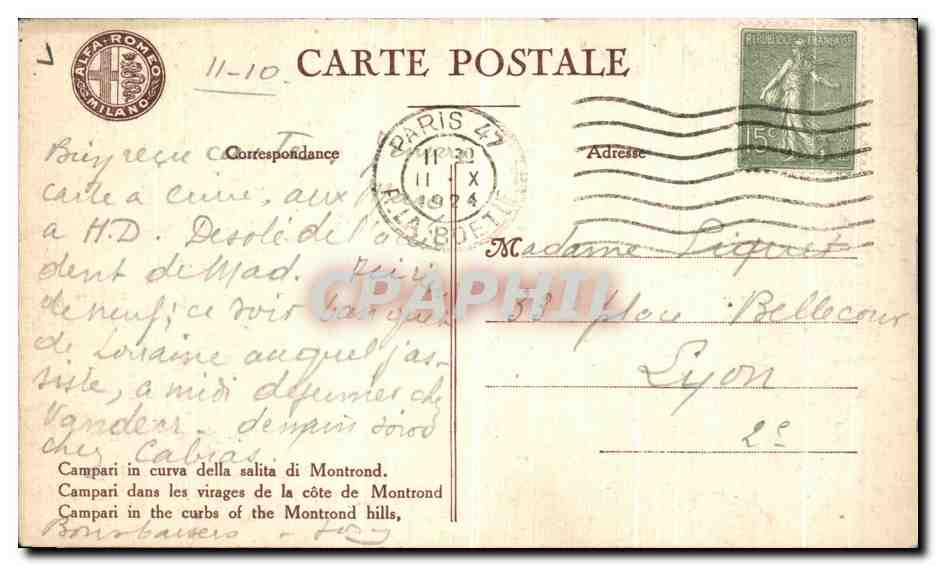 ALFA·ROMEO
MILANO
11-10
CARTE POSTALE
REPUBLIQUE FRANÇAISE
15c
PARIS 47
11 30
11 · X
1924
R. LA BOETIE
Correspondance
Adresse
Bien reçu
carte a cuire, aux
a H.D. Desolé de l'acci
dent de Mad.
de neuf; ce soir banquet
de Lorraine auquel j'as-
siste, a midi déjeuner chez
demain soiree
chez Cabias.
Madame Piquet
53 place Bellecour
Lyon
2e
CPAPHIL
Campari in curva della salita di Montrond.
Campari dans les virages de la côte de Montrond
Campari in the curbs of the Montrond hills,